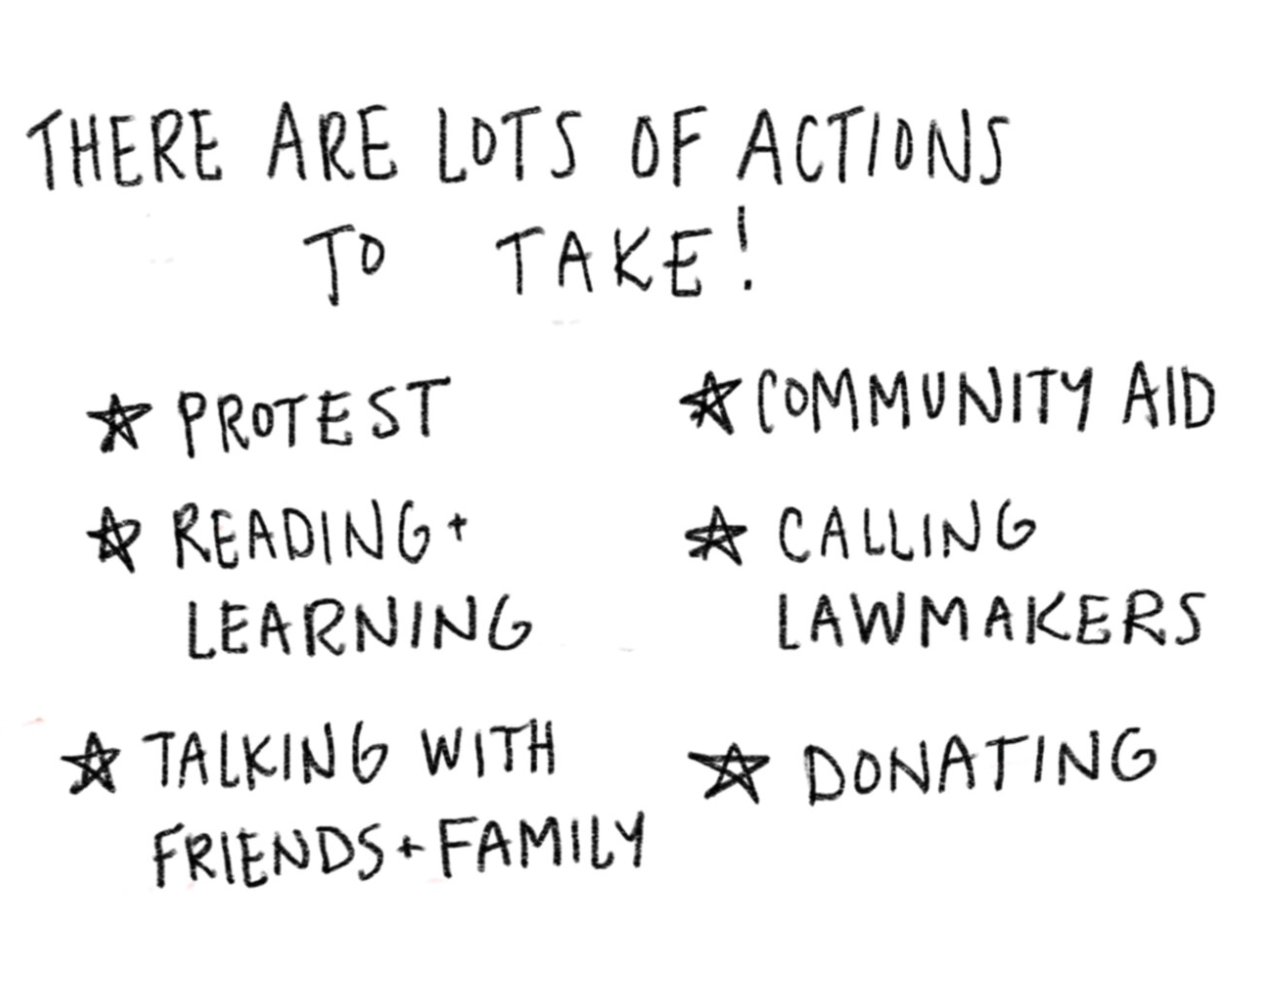 THERE ARE LOTS OF ACTIONS
TO TAKE!
PROTEST
READING +
LEARNING
TALKING WITH
FRIENDS + FAMILY
COMMUNITY AID
CALLING
LAWMAKERS
DONATING